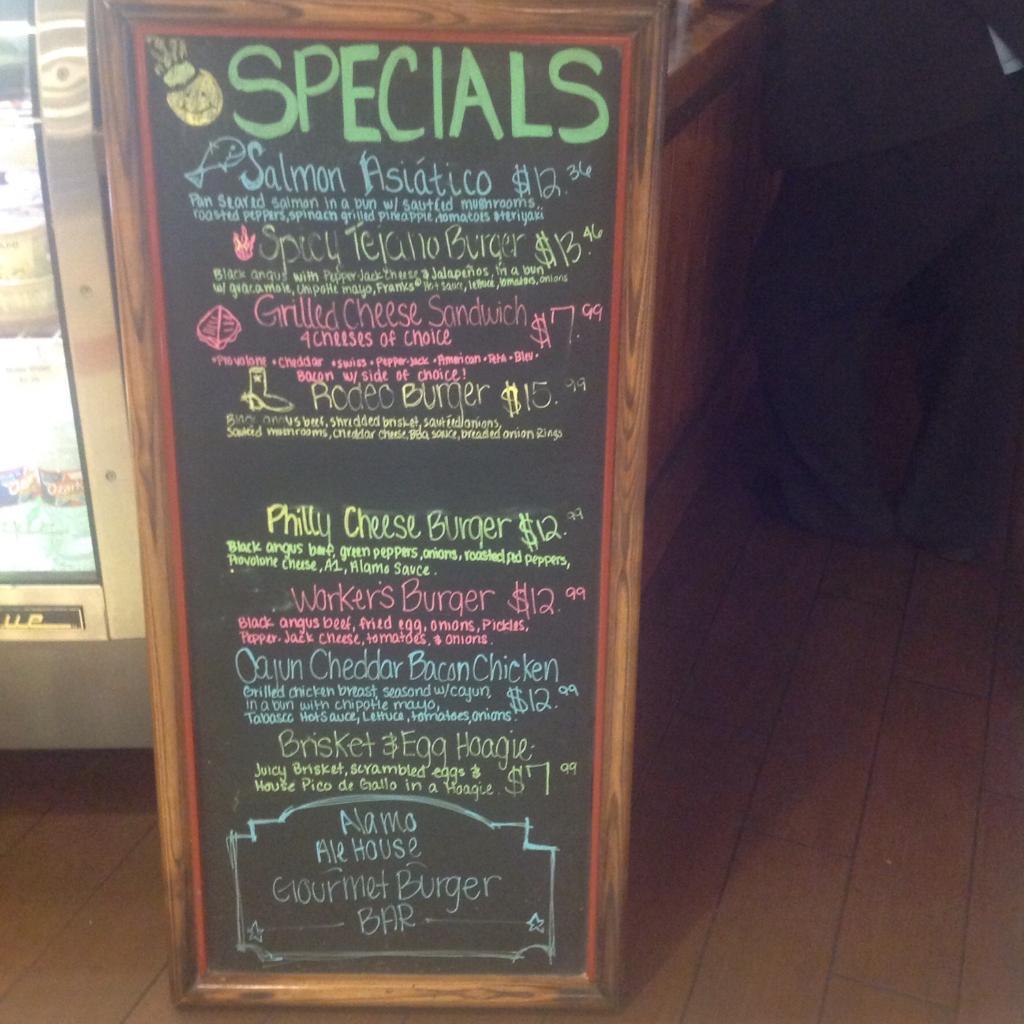 SPECIALS
Salmon Asiático $12.36
Pan Seared salmon in a bun w/ sautéed mushrooms,
roasted peppers, spinach grilled pineapple, tomatoes & teriyaki
Spicy Tejano Burger $13.46
Black angus with Pepper Jack Cheese & Jalapeños, in a bun
w/ guacamole, chipotle mayo, Franks® Hot Sauce, lettuce, tomatoes, onions
Grilled Cheese Sandwich $7.99
4 cheeses of choice
•Provolone •Cheddar •Swiss •Pepper-Jack •American •Feta •Bleu•
Bacon w/ side of choice!
Rodeo Burger $15.99
Black angus beef, shredded brisket, sautéed onions,
Sautéed mushrooms, cheddar cheese, BBQ sauce, breaded onion Rings
Philly Cheese Burger $12.99
Black angus beef, green peppers, onions, roasted red peppers,
Provolone Cheese, A1, Alamo Sauce.
Worker's Burger $12.99
Black angus beef, fried egg, onions, Pickles,
Pepper-Jack cheese, tomatoes, & onions.
Cajun Cheddar Bacon Chicken
Grilled chicken breast, seasond w/cajun, $12.99
in a bun with chipotle mayo,
Tabasco Hot Sauce, Lettuce, tomatoes, onions.
Brisket & Egg Hoagie
Juicy Brisket, scrambled eggs & $7.99
House Pico de Gallo in a Hoagie.
Alamo
Ale House
Gourmet Burger
BAR